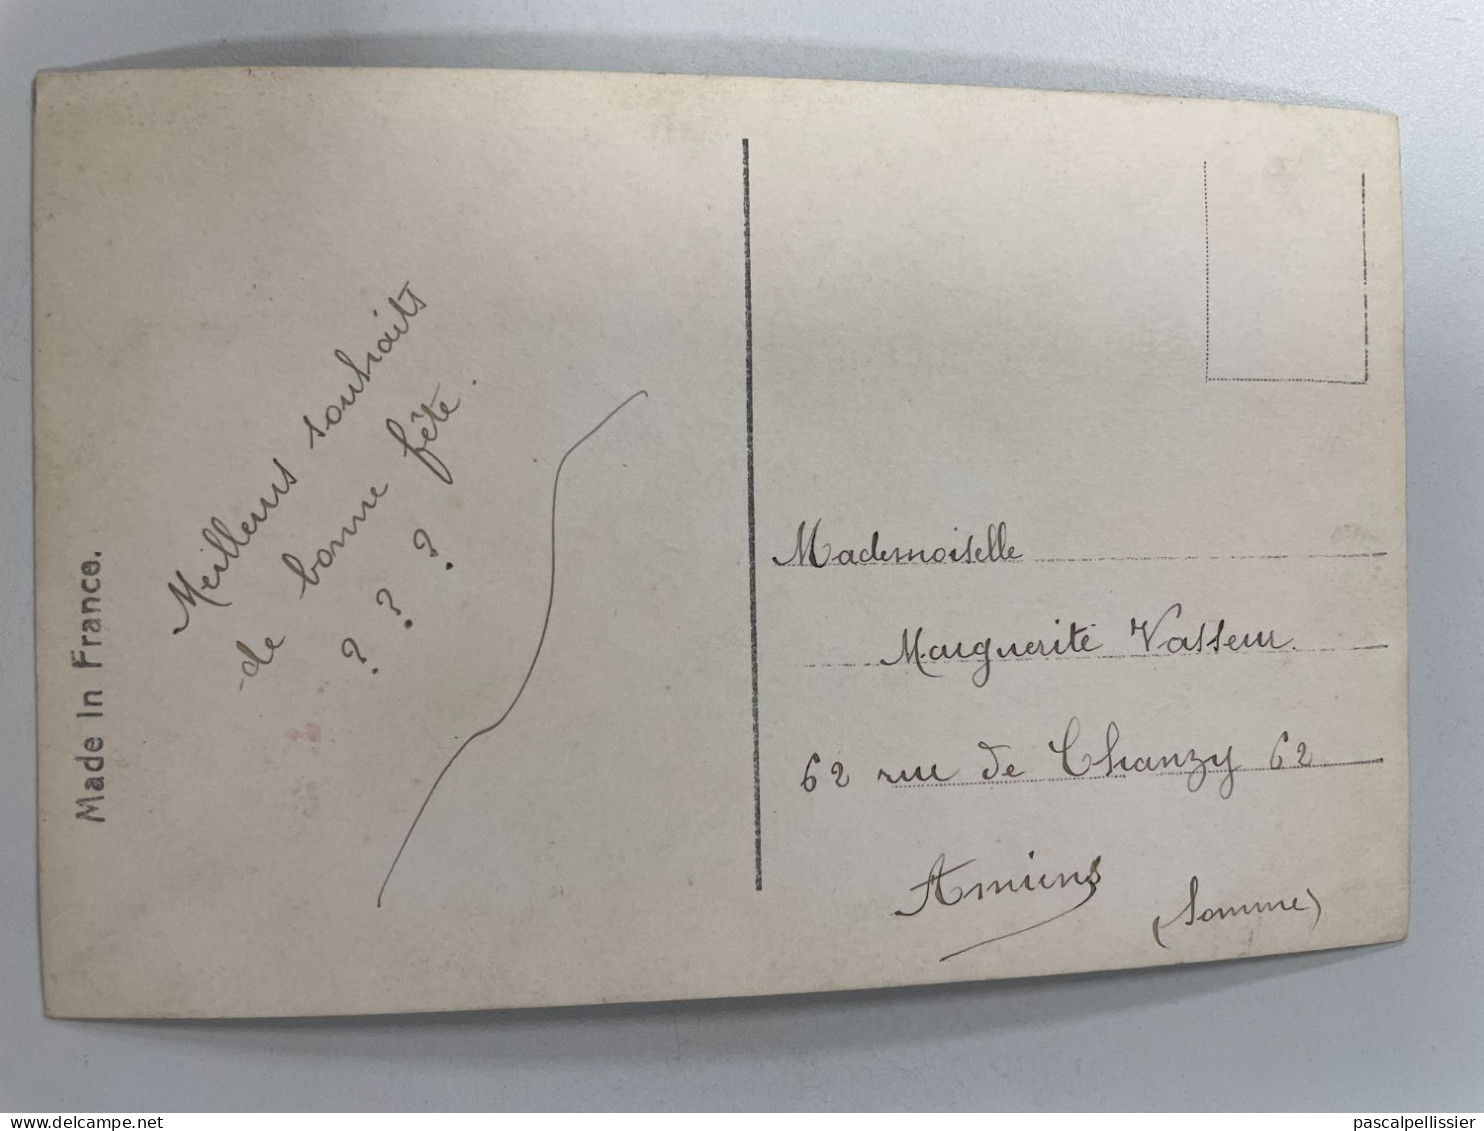 Made In France.
Meilleurs souhaits
de bonne fête.
? ? ?
Mademoiselle
Marguerite Vasseur.
62 rue de Chanzy 62
Amiens
(Somme)
www.delcampe.net
pascalpellissier